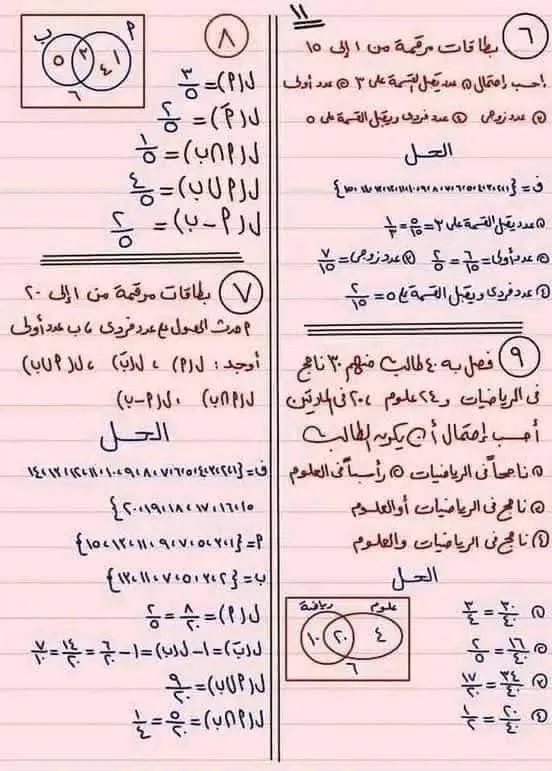 ١١
٦ بطاقات مرقمة من ١ إلى ١٥
إحسب إحتمال ① عدد يقبل القسمة على ٣ ② عدد أولى
③ عدد زوجى ④ عدد فردى ويقبل القسمة على ٥
الحل
ف = {١،٢،٣،٤،٥،٦،٧،٨،٩،١٠،١١،١٢،١٣،١٤،١٥}
① عدد يقبل القسمة على ٣ = ٥/١٥ = ١/٣
② عدد أولى = ٦/١٥ = ٢/٥ ③ عدد زوجى = ٧/١٥
④ عدد فردى ويقبل القسمة على ٥ = ٢/١٥
٩ فصل به ٤٠ طالب منهم ٣٠ ناجح
فى الرياضيات و ٢٤ علوم ، ٢٠ فى المادتين
أحسب إحتمال أن يكون الطالب
① ناجحاً فى الرياضيات ② راسباً فى العلوم
③ ناجح فى الرياضيات أو العلوم
④ ناجح فى الرياضيات والعلوم
الحل
رياضة علوم
١٠ ٢٠ ٤
٦
① ٣٠/٤٠ = ٣/٤
② ١٦/٤٠ = ٢/٥
③ ٣٤/٤٠ = ١٧/٢٠
④ ٢٠/٤٠ = ١/٢
٨
ب م
٥ ٢ ٤ ١
٦
ل(م) = ٣/٥
ل(مَ) = ٢/٥
ل(م∩ب) = ١/٥
ل(م∪ب) = ٤/٥
ل(م-ب) = ٢/٥
٧ بطاقات مرقمة من ١ إلى ٢٠
م حدث الحصول على عدد فردى ، ب عدد أولى
أوجد : ل(م) ، ل(بَ) ، ل(م∪ب)
ل(م∩ب) ، ل(م-ب)
الحل
ف = {١،٢،٣،٤،٥،٦،٧،٨،٩،١٠،١١،١٢،١٣،١٤
١٥،١٦،١٧،١٨،١٩،٢٠}
م = {١،٣،٥،٧،٩،١١،١٣،١٥}
ب = {٢،٣،٥،٧،١١،١٣}
ل(م) = ٨/٢٠ = ٢/٥
ل(بَ) = ١-ل(ب) = ١-٦/٢٠ = ١٤/٢٠ = ٧/١٠
ل(م∪ب) = ٩/٢٠
ل(م∩ب) = ٥/٢٠ = ١/٤